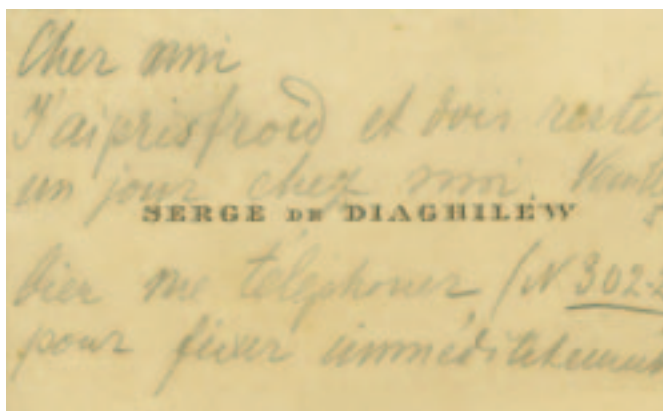 Cher moi
J'ai pris froid et dois reste
un jour chez moi Veuil
SERGE DE DIAGHILÉW
bien me téléphoner (N 302-
pour fixer imméditetement